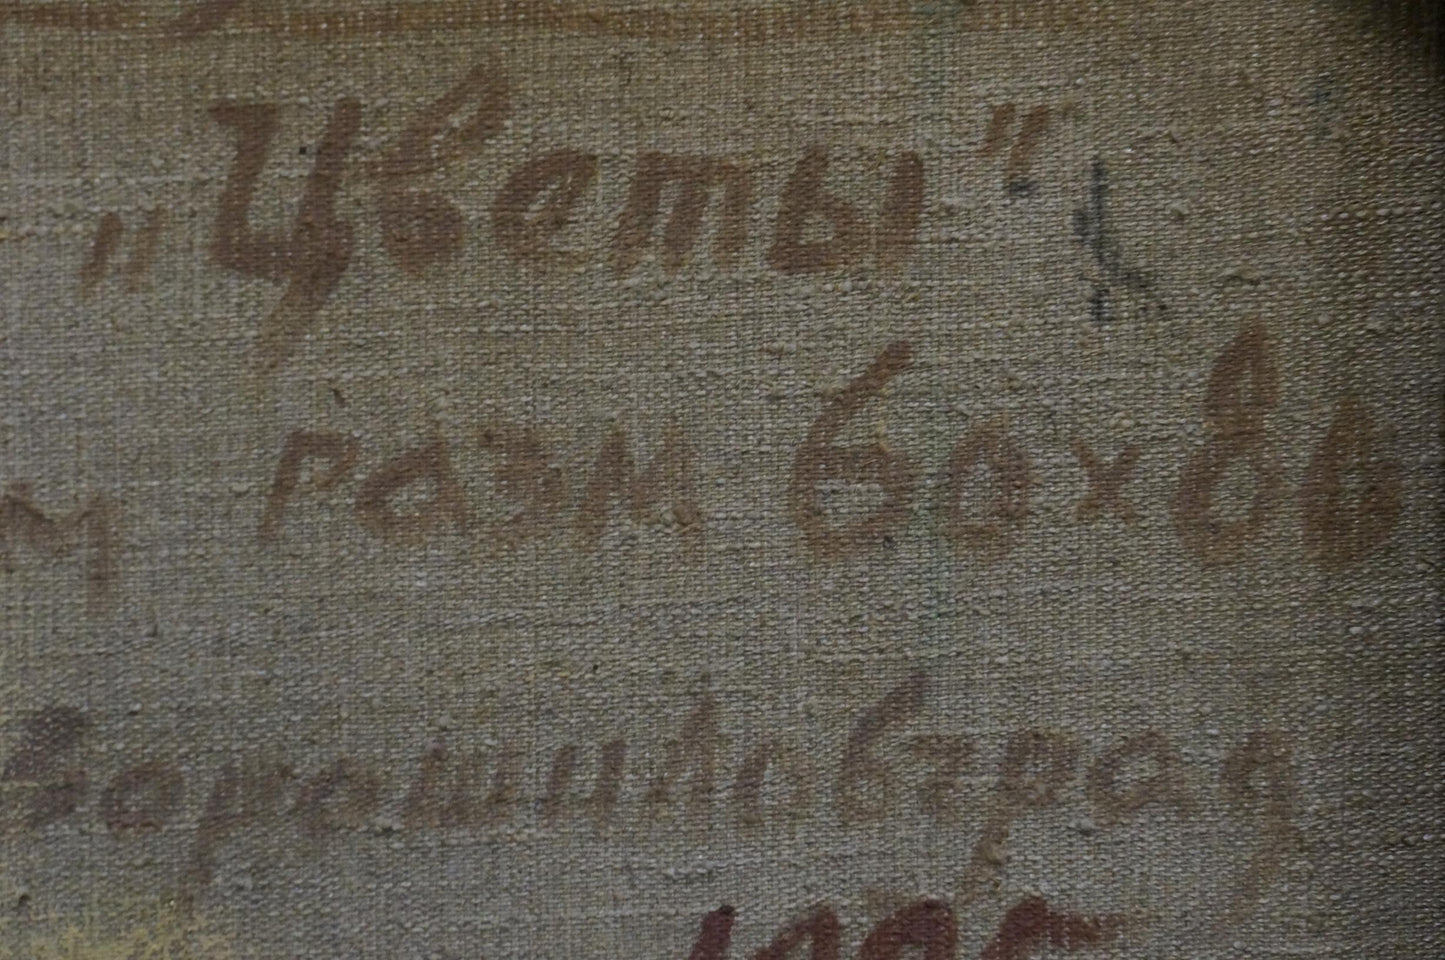 „Цветы"
м разм 60x80
Ворошиловград